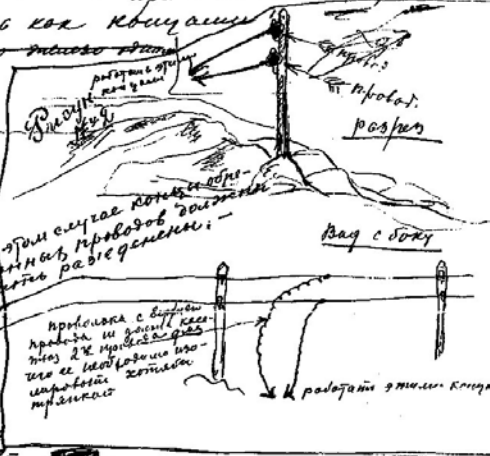 как концами
железо одни
работать этим
концами
Рисун.
провод
провод.
разрез
этом случае концы обре-
нных проводов должны
ть разведены. —
Вид с боку
проволока с верхнего
провода не должна каса-
ться 2го провода для
чего ее необходимо изо-
лировать хотябы
тряпкой
работать этими конца